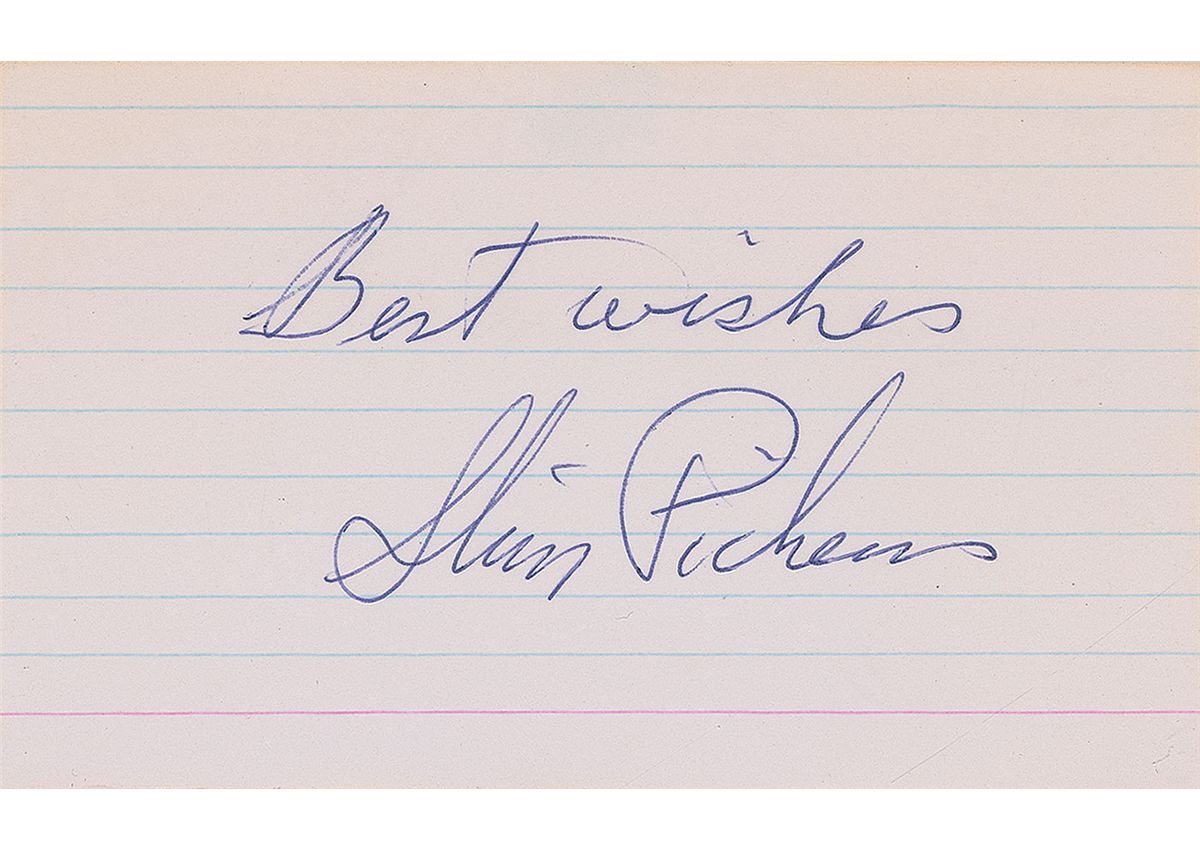 Best wishes
Slim Pickens